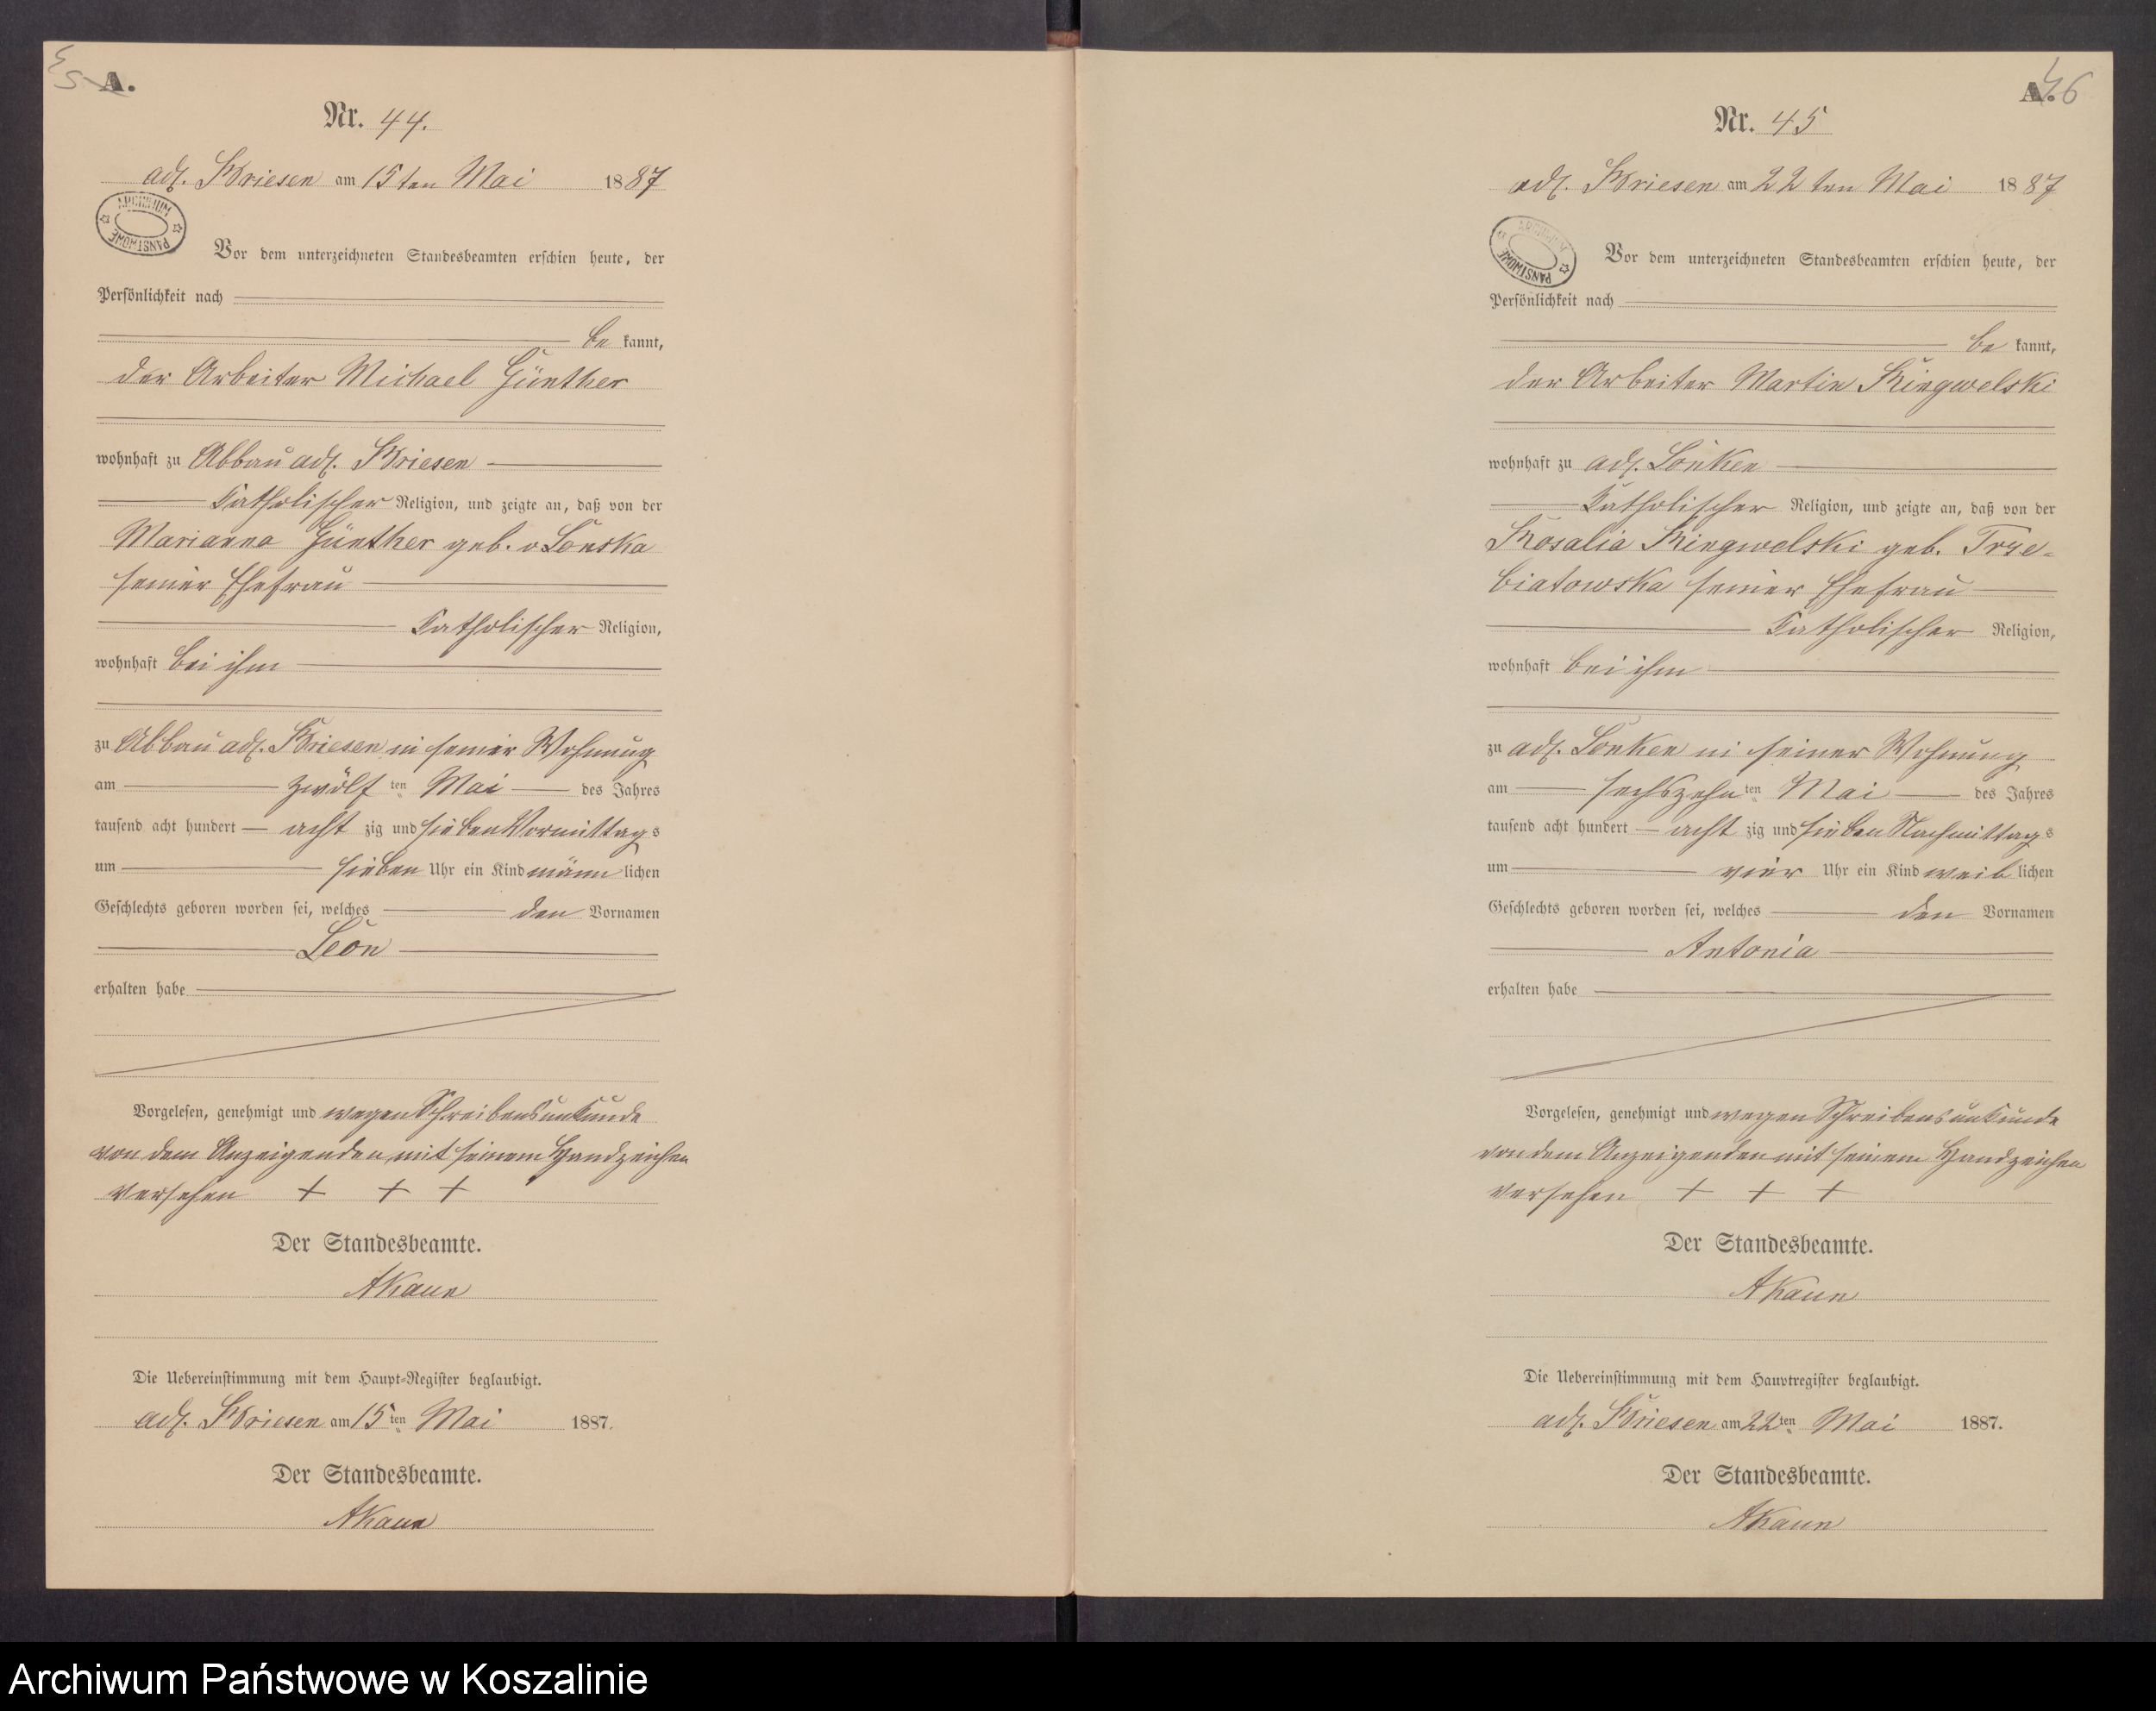 A.
Nr. 44.
adl. Briesen am 15ten Mai 1887
ARCHIWUM PAŃSTWOWE
Vor dem unterzeichneten Standesbeamten erschien heute, der
Persönlichkeit nach
be kannt,
der Arbeiter Michael Günther
wohnhaft zu Abbau adl. Briesen
katholischer Religion, und zeigte an, daß von der
Marianna Günther geb. v Lonska
seiner Ehefrau
katholischer Religion,
wohnhaft bei ihm
zu Abbau adl. Briesen in seiner Wohnung
am zwölf ten Mai des Jahres
tausend acht hundert acht zig und sieben Vormittags
um sieben Uhr ein Kind männ lichen
Geschlechts geboren worden sei, welches den Vornamen
Leon
erhalten habe
Vorgelesen, genehmigt und wegen Schreibensunkunde
von dem Anzeigenden mit seinem Handzeichen
versehen + + +
Der Standesbeamte.
AKaun
Die Uebereinstimmung mit dem Haupt-Register beglaubigt.
adl. Briesen am 15ten Mai 1887.
Der Standesbeamte.
AKaun
A. 46
Nr. 45
adl. Briesen am 22ten Mai 1887
ARCHIWUM PAŃSTWOWE
Vor dem unterzeichneten Standesbeamten erschien heute, der
Persönlichkeit nach
be kannt,
der Arbeiter Martin Ringwelski
wohnhaft zu adl. Lonken
katholischer Religion, und zeigte an, daß von der
Rosalia Ringwelski geb. Trze-
biatowska seiner Ehefrau
katholischer Religion,
wohnhaft bei ihm
zu adl. Lonken in seiner Wohnung
am sechszehn ten Mai des Jahres
tausend acht hundert acht zig und sieben Nachmittags
um vier Uhr ein Kind weib lichen
Geschlechts geboren worden sei, welches den Vornamen
Antonia
erhalten habe
Vorgelesen, genehmigt und wegen Schreibensunkunde
von dem Anzeigenden mit seinem Handzeichen
versehen + + +
Der Standesbeamte.
AKaun
Die Uebereinstimmung mit dem Hauptregister beglaubigt.
adl. Briesen am 22ten Mai 1887.
Der Standesbeamte.
AKaun
Archiwum Państwowe w Koszalinie